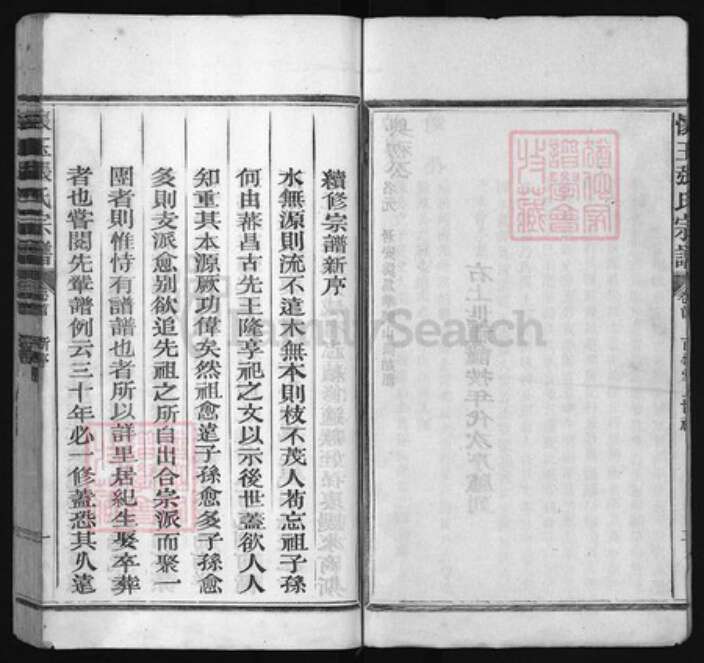 懷玉張氏宗譜
續修宗譜新序
水無源則流不遠木無本則枝不茂人苟忘祖子孫
何由蕃昌古先王隆享祀之文以示後世蓋欲人人
知重其本源厥功偉矣然祖愈遠子孫愈多子孫愈
多則支派愈别欲追先祖之所自出合宗派而聚一
團者則惟恃有譜譜也者所以詳里居紀生娶卒葬
者也嘗閱先輩譜例云三十年必一修蓋恐其久遠
張氏宗譜
新序
一
FamilySearch